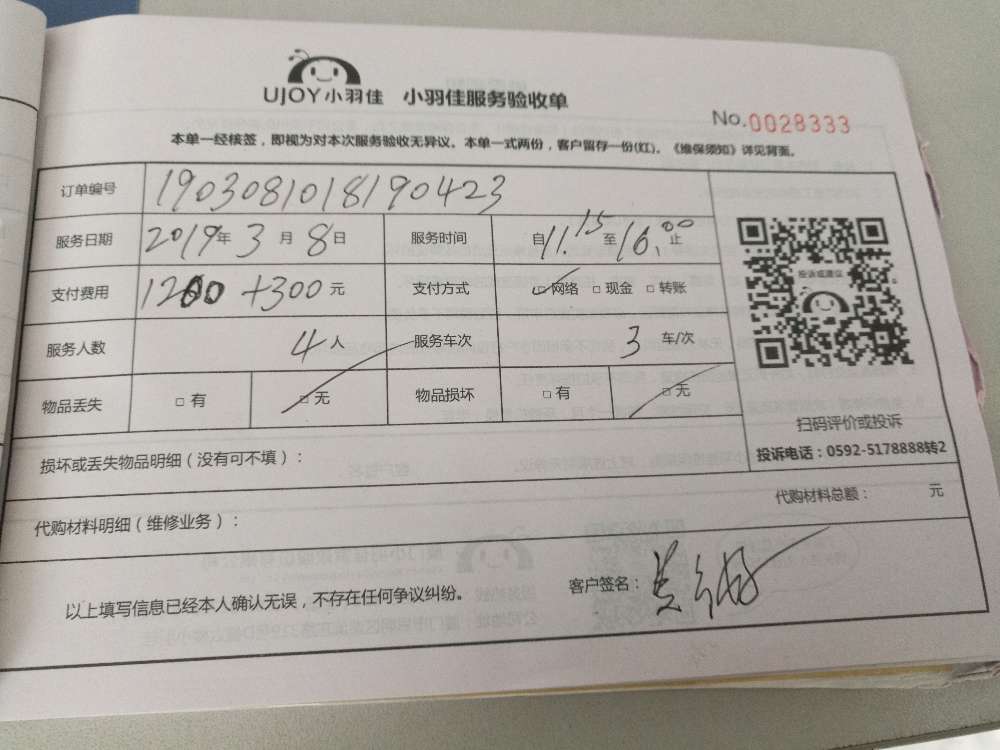 UJOY小羽佳 小羽佳服务验收单
No.0028333
本单一经核签，即视为对本次服务验收无异议。本单一式两份，客户留存一份(红)。《维保须知》详见背面。
订单编号 1903081018190423
服务日期 2019年3月8日 服务时间 自11.15至16.00止
支付费用 1200+300元 支付方式 □网络 □现金 □转账
投诉或建议
服务人数 4人 服务车次 3车/次
物品丢失 □有 □无 物品损坏 □有 □无
扫码评价或投诉
投诉电话：0592-5178888转2
损坏或丢失物品明细（没有可不填）：
代购材料明细（维修业务）： 代购材料总额： 元
以上填写信息已经本人确认无误，不存在任何争议纠纷。 客户签名：